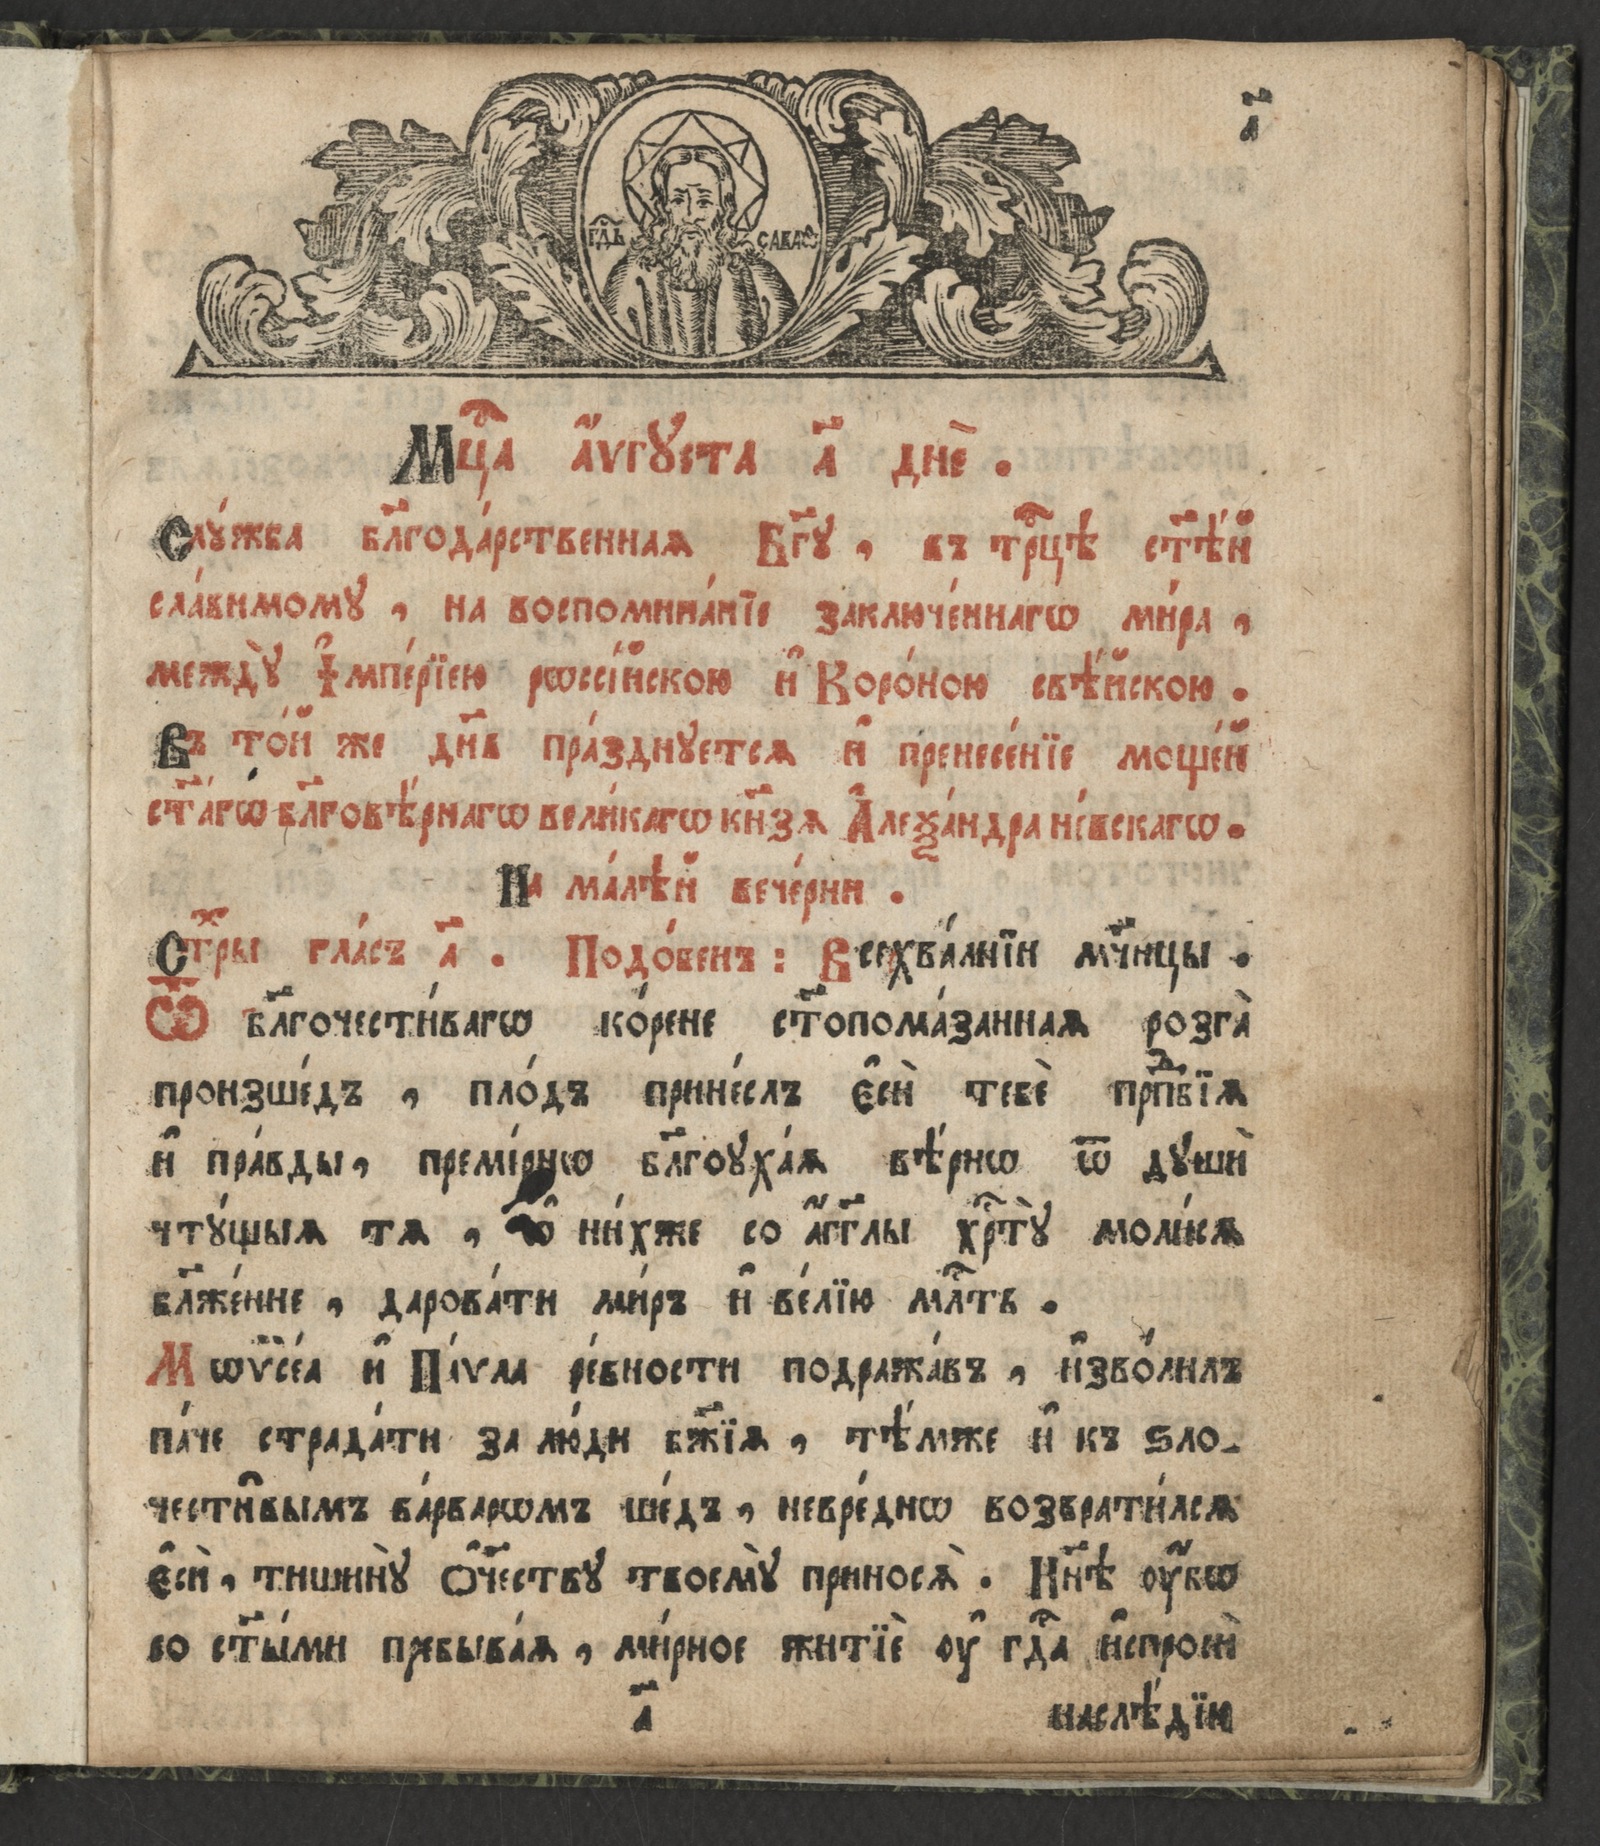 а҃
гдⷭ҇ь саваѡ
Мцⷭ҇а а҆́ѵгꙋста а҃ днѐ .
Слꙋ́жба бл҃года́рственнаѧ Бг҃ꙋ , въ трⷪ҇цѣ ст҃ѣ́й
сла́вимомꙋ , на воспомина́нїе заключе́ннагѡ ми́ра ,
междꙋ̀ І҆мпе́рїею рѡссі́йскою и҆ Коро́ною свѣ́йскою .
Въ то́й же дн҃ь пра́зднꙋетсѧ и҆ пренесе́нїе моще́й
ст҃а́гѡ бл҃говѣ́рнагѡ вели́кагѡ кн҃зѧ А҆леѯа́ндра не́вскагѡ .
На ма́лѣй вече́рни .
Стⷯры гла́съ а҃ . Подо́бенъ : Всехва́лнїи мч҃нцы .
Ѿ бл҃гочести́вагѡ ко́рене ст҃опома́заннаѧ розга̀
произше́дъ , пло́дъ прине́слъ є҆сѝ тебѐ прпⷣбїѧ
и҆ пра́вды , премі́рнѡ бл҃гоꙋха́ѧ вѣ́рнѡ ѿ дꙋшѝ
чтꙋ́щыѧ тѧ , ѡ҆ ни́хже со а҆́гг҃лы хрⷭ҇тꙋ̀ моли́сѧ
бл҃же́нне , дарова́ти ми́ръ и҆ ве́лїю млⷭ҇ть .
Мѡѷсе́а и҆ Па́ѵла ре́вности подража́въ , и҆зво́лилъ
па́че страда́ти за лю́ди бж҃їѧ , тѣ́мже и҆ къ ѕло-
чести̑вымъ ва́рварѡмъ ше́дъ , невре́днѡ возврати́лсѧ
є҆сѝ , тишинꙋ̀ ѻ҆ч҃ествꙋ твоемꙋ̀ приносѧ̀ . Нн҃ѣ оу҆́бѡ
со ст҃ы́ми пребыва́ѧ , ми́рное житїѐ оу҆ гдⷭ҇а и҆спросѝ
а҃ наслѣ́дїю